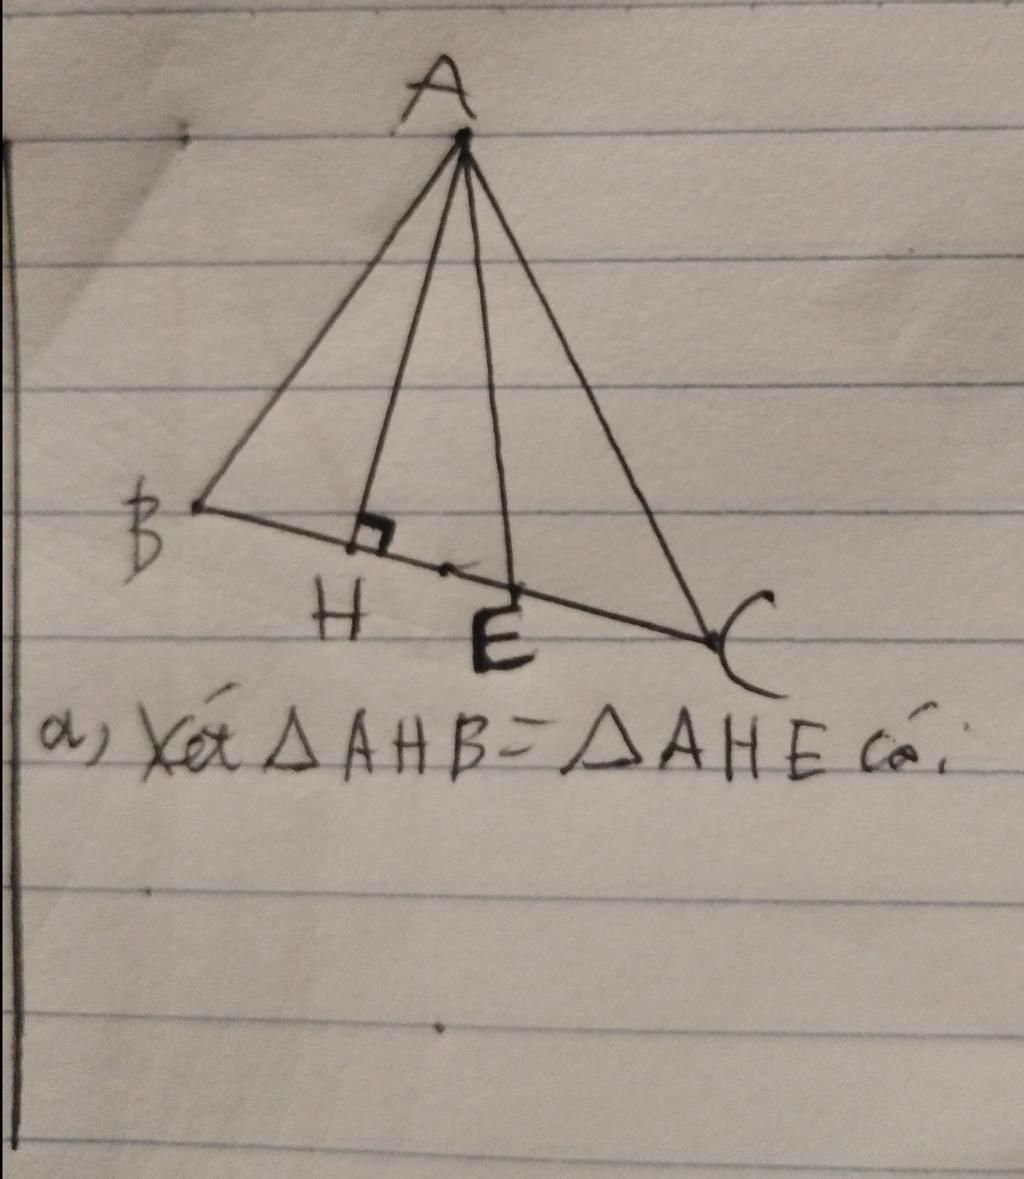 A
B
H
E
C
a, Xét Δ AHB = Δ AHE có: